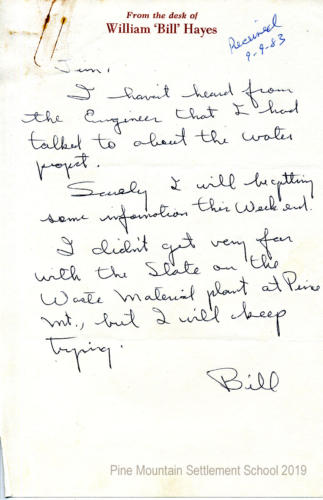 From the desk of
William 'Bill' Hayes
Received
9-9-83
Jim,
I havn't heard from
the Engineer that I had
talked to about the water
project.
Surely I will be getting
some information this Week end.
I didn't get very far
with the State on the
Waste Material plant at Pine
Mt., but I will keep
trying.
Bill
Pine Mountain Settlement School 2019